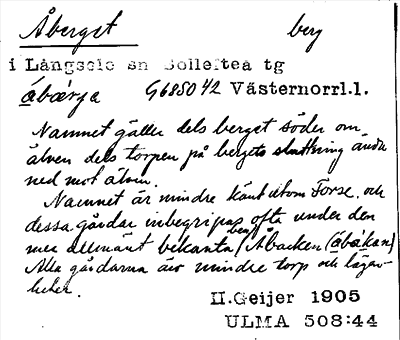 Åberget berg
i Långsele sn Sollefteå tg
åbærja G6850 42 Västernorrl.l.
Namnet gäller dels berget söder om
älven dels torpen på bergets sluttning ända
ned mot älven.
Namnet är mindre känt utom Forse, och
dessa gårdar inbegripas ofta under den
mer allmänt bekanta ben. Åbacken (åbákan)
Alla gårdarna äro mindre torp och lägen-
heter.
H.Geijer 1905
ULMA 508:44